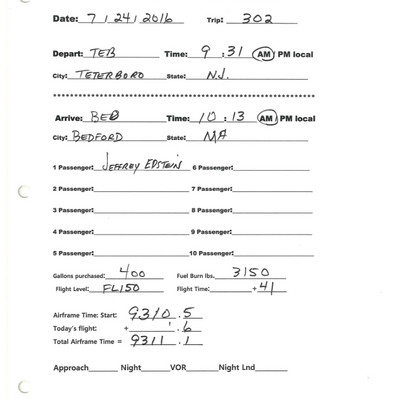 Date: 7/24/2016 Trip: 302
Depart: TEB Time: 9:31 AM PM local
City: TETERBORO State: N.J.
Arrive: BED Time: 10:13 AM PM local
City: BEDFORD State: MA
1 Passenger: JEFFREY EPSTEIN 6 Passenger:
2 Passenger: 7 Passenger:
3 Passenger: 8 Passenger:
4 Passenger: 9 Passenger:
5 Passenger: 10 Passenger:
Gallons purchased: 400 Fuel Burn lbs. 3150
Flight Level: FL150 Flight Time: +41
Airframe Time: Start: 9310.5
Today's flight: + .6
Total Airframe Time = 9311.1
Approach Night VOR Night Lnd